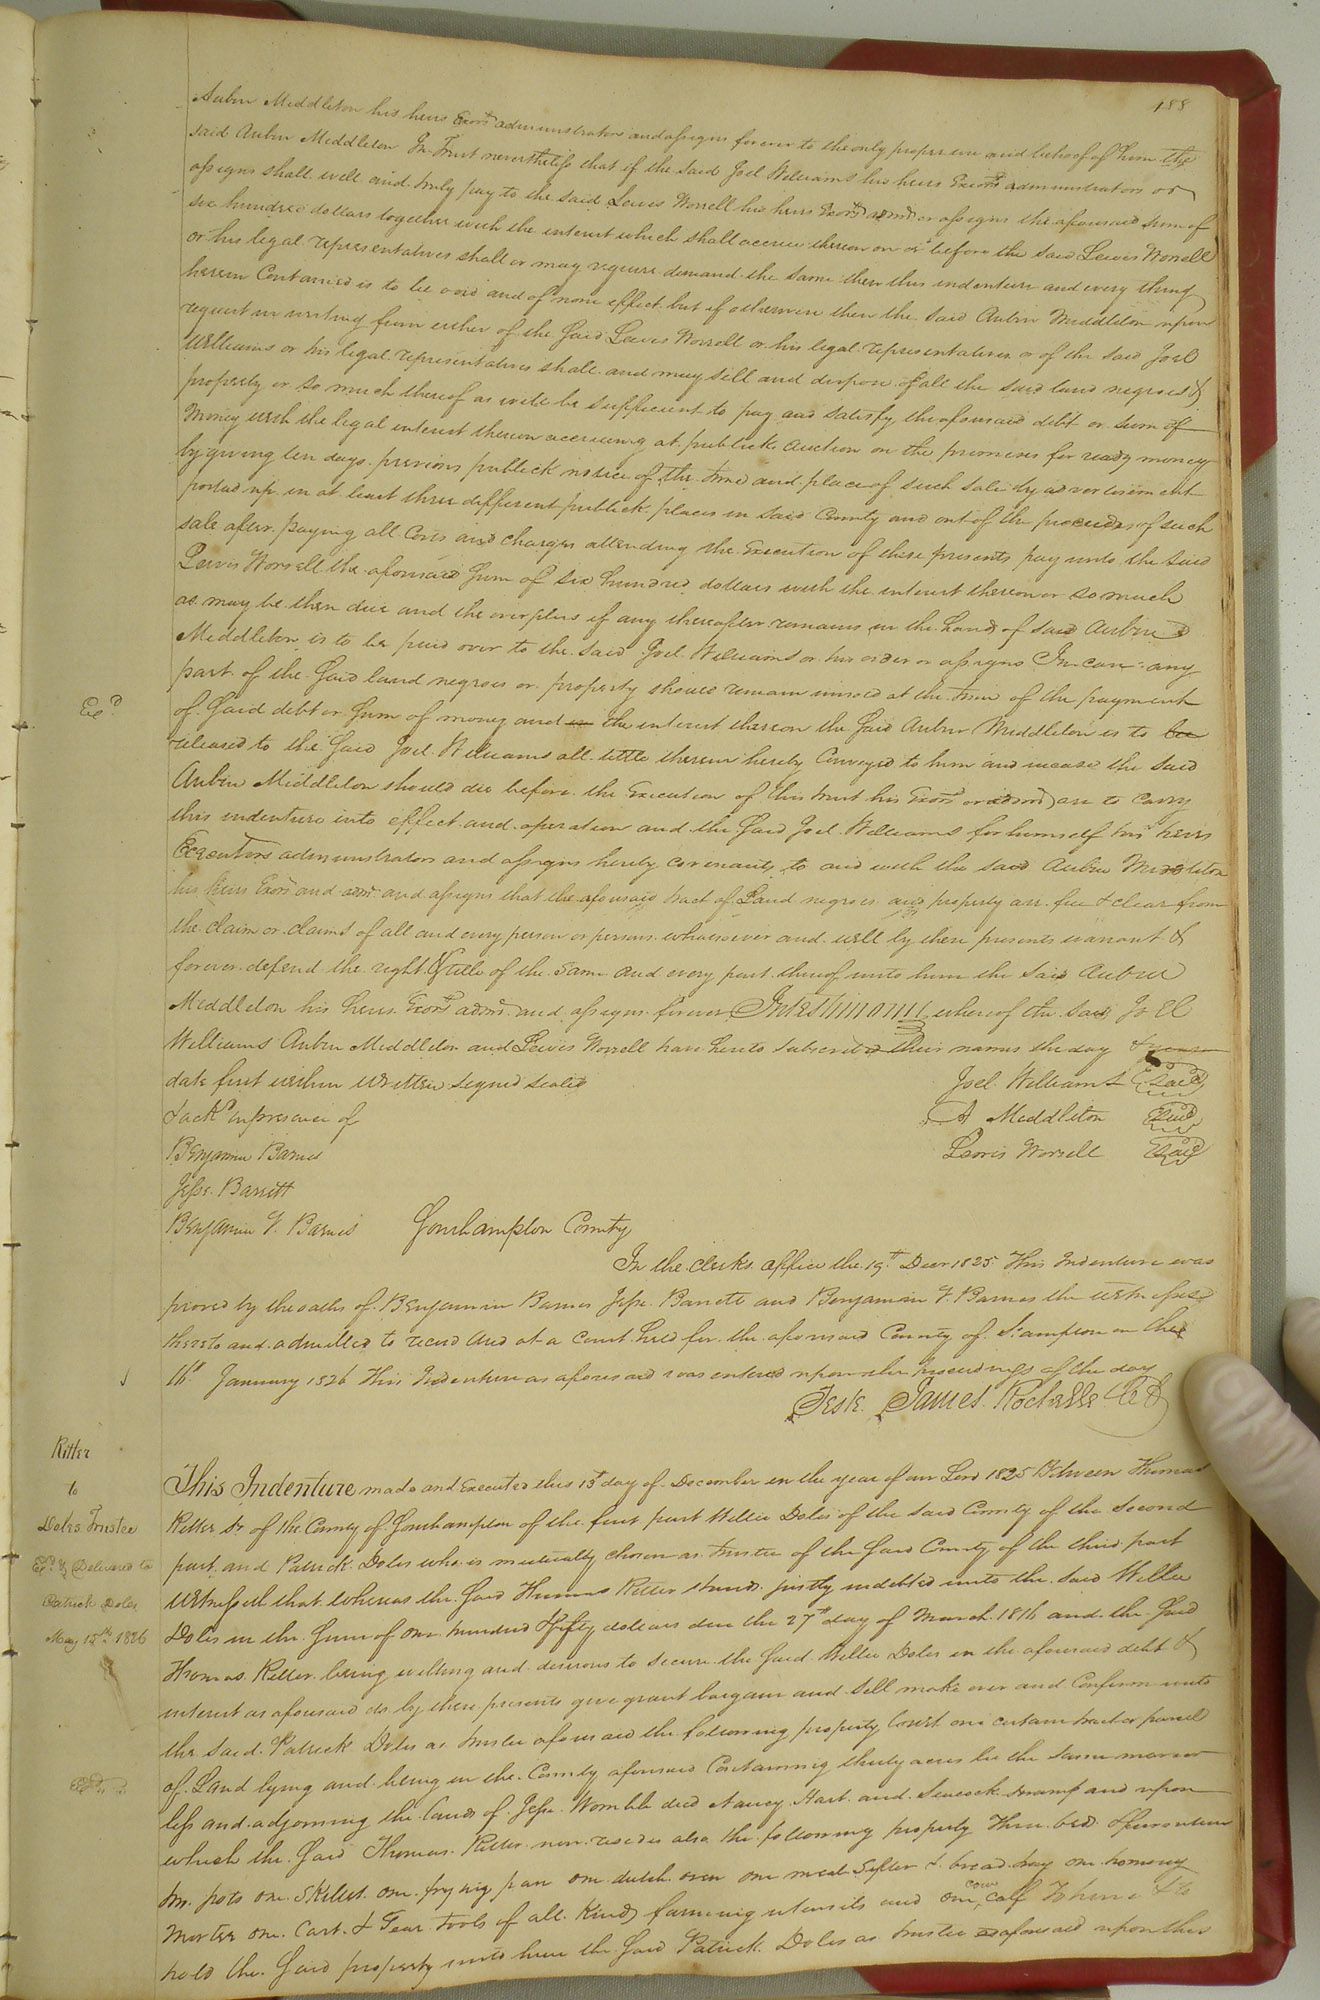 188
Aubin Middleton his heirs Exors administrators and assigns forever to the only proper use and behoof of him the
said Aubin Middleton In Trust nevertheless that if the said Joel Williams his heirs Exors administrators or
assigns shall well and truly pay to the said Lewis Worrell his heirs Exors admrs or assigns the aforesaid sum of
six hundred dollars together with the interest which shall accrue thereon on or before the said Lewis Worrell
or his legal representatives shall or may require demand the same then this indenture and every thing
herein Contained is to be void and of none effect but if otherwise then the said Aubin Middleton upon
request in writing from either of the said Lewis Worrell or his legal representatives or of the said Joel
Williams or his legal representatives shall and may sell and dispose of all the said land negroes &
property or so much thereof as will be sufficient to pay and satisfy the aforesaid debt or sum of
money with the legal interest thereon accruing at publick auction on the premises for ready money
by giving ten days previous publick notice of the time and place of such sale by advertisement
posted up in at least three different publick places in said County and out of the proceeds of such
sale after paying all Costs and charges attending the Execution of these presents pay unto the said
Lewis Worrell the aforesaid sum of six hundred dollars with the interest thereon or so much
as may be then due and the overplus if any thereafter remains in the hands of said Aubin
Middleton is to be paid over to the said Joel Williams or his order or assigns In case any
part of the said land negroes or property should remain unsold at the time of the payment
Exd
of said debt or sum of money and in the interest thereon the said Aubin Middleton is to be
released to the said Joel Williams all title therein hereby Conveyed to him and incase the said
Aubin Middleton should die before the Execution of this trust his Exors or admrs are to carry
this indenture into effect and operation and the said Joel Williams for himself his heirs
Executors administrators and assigns hereby covenants to and with the said Aubin Middleton
his heirs Exors and admrs and assigns that the aforesaid tract of Land negroes and property are free & clear from
the claim or claims of all and every person or persons whatsoever and will by these presents warrant &
forever defend the right & title of the same and every part thereof unto him the said Aubin
Middleton his heirs Exors admrs and assigns forever In testimony whereof the said Joel
Williams Aubin Middleton and Lewis Worrell have hereto subscribed their names the day &
date first within written signed sealed
Joel Williams Seal
& ackd in presence of
A Middleton Seal
Benjamin Barnes
Lewis Worrell Seal
Jesse Barrett
Benjamin F. Barnes
Southampton County
In the clerks office the 19th Decr 1825 This Indenture was
proved by the oaths of Benjamin Barnes Jesse Barrett and Benjamin F. Barnes the witnesses
thereto and admitted to record And at a court held for the aforesaid County of S:ampton on the
16th January 1826 This Indenture as aforesaid was entered upon the proceedings of the day
Teste James Rochelle
Ritter
to
Doles Trustee
Exd & Delivered to
Patrick Doles
May 15th 1826
This Indenture made and Executed this 13th day of December in the year of our Lord 1825 Between Thomas
Ritter Sr of the County of Southampton of the first part Willie Doles of the said County of the Second
part and Patrick Doles who is mutually chosen as trustee of the said County of the third part
Witnesseth that whereas the said Thomas Ritter stands justly indebted unto the said Willie
Doles in the sum of one hundred & fifty dollars due the 27th day of March 1816 and the said
Thomas Ritter being willing and desirous to secure the said Willie Doles in the aforesaid debt &
interest as aforesaid do by these presents give grant bargain and sell make over and Confirm unto
the said Patrick Doles as trustee aforesaid the following property towit one certain tract or parcel
Exd
of Land lying and being in the County aforesaid Containing thirty acres be the same more or
less and adjoining the lands of Jesse Womble decd Nancy Hart and Seacock swamp and upon
which the said Thomas Ritter now resides also the following property Three beds & furniture
two pots one skillet one frying pan one dutch oven one meal sifter & bread tray one homony
Morter one Cart & Gear tools of all kinds farming utensils and one cow calf To have & to
hold the said property unto him the said Patrick Doles as trustee aforesaid upon this